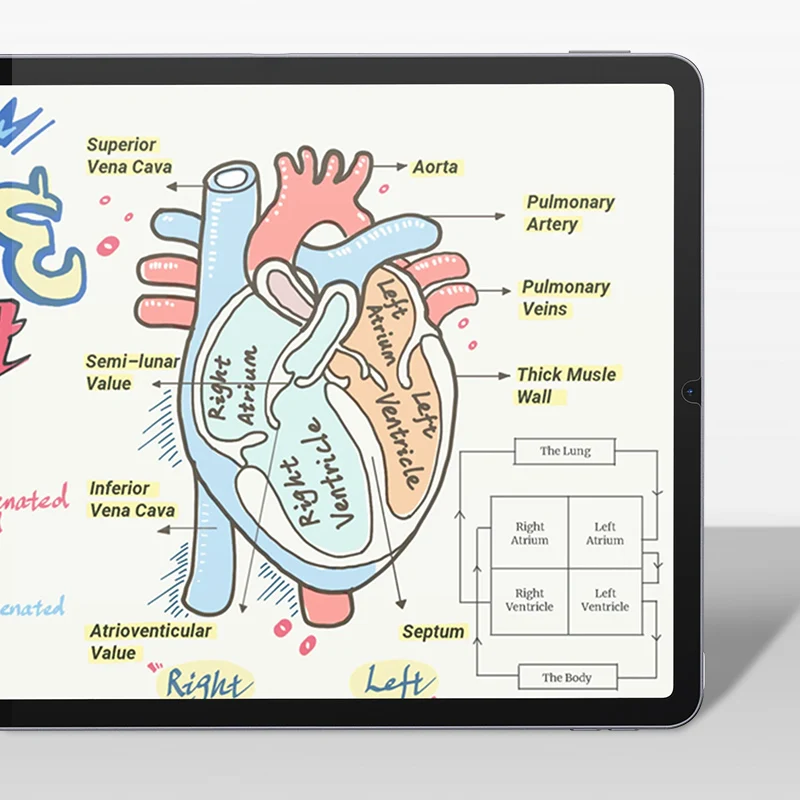 Superior
Vena Cava
Aorta
Pulmonary
Artery
Pulmonary
Veins
Left
Atrium
Right
Atrium
Semi-lunar
Value
Thick Musle
Wall
Left
Ventricle
Right
Ventricle
The Lung
Inferior
Vena Cava
Right
Atrium
Left
Atrium
Right
Ventricle
Left
Ventricle
Atrioventicular
Value
Septum
The Body
Right
Left